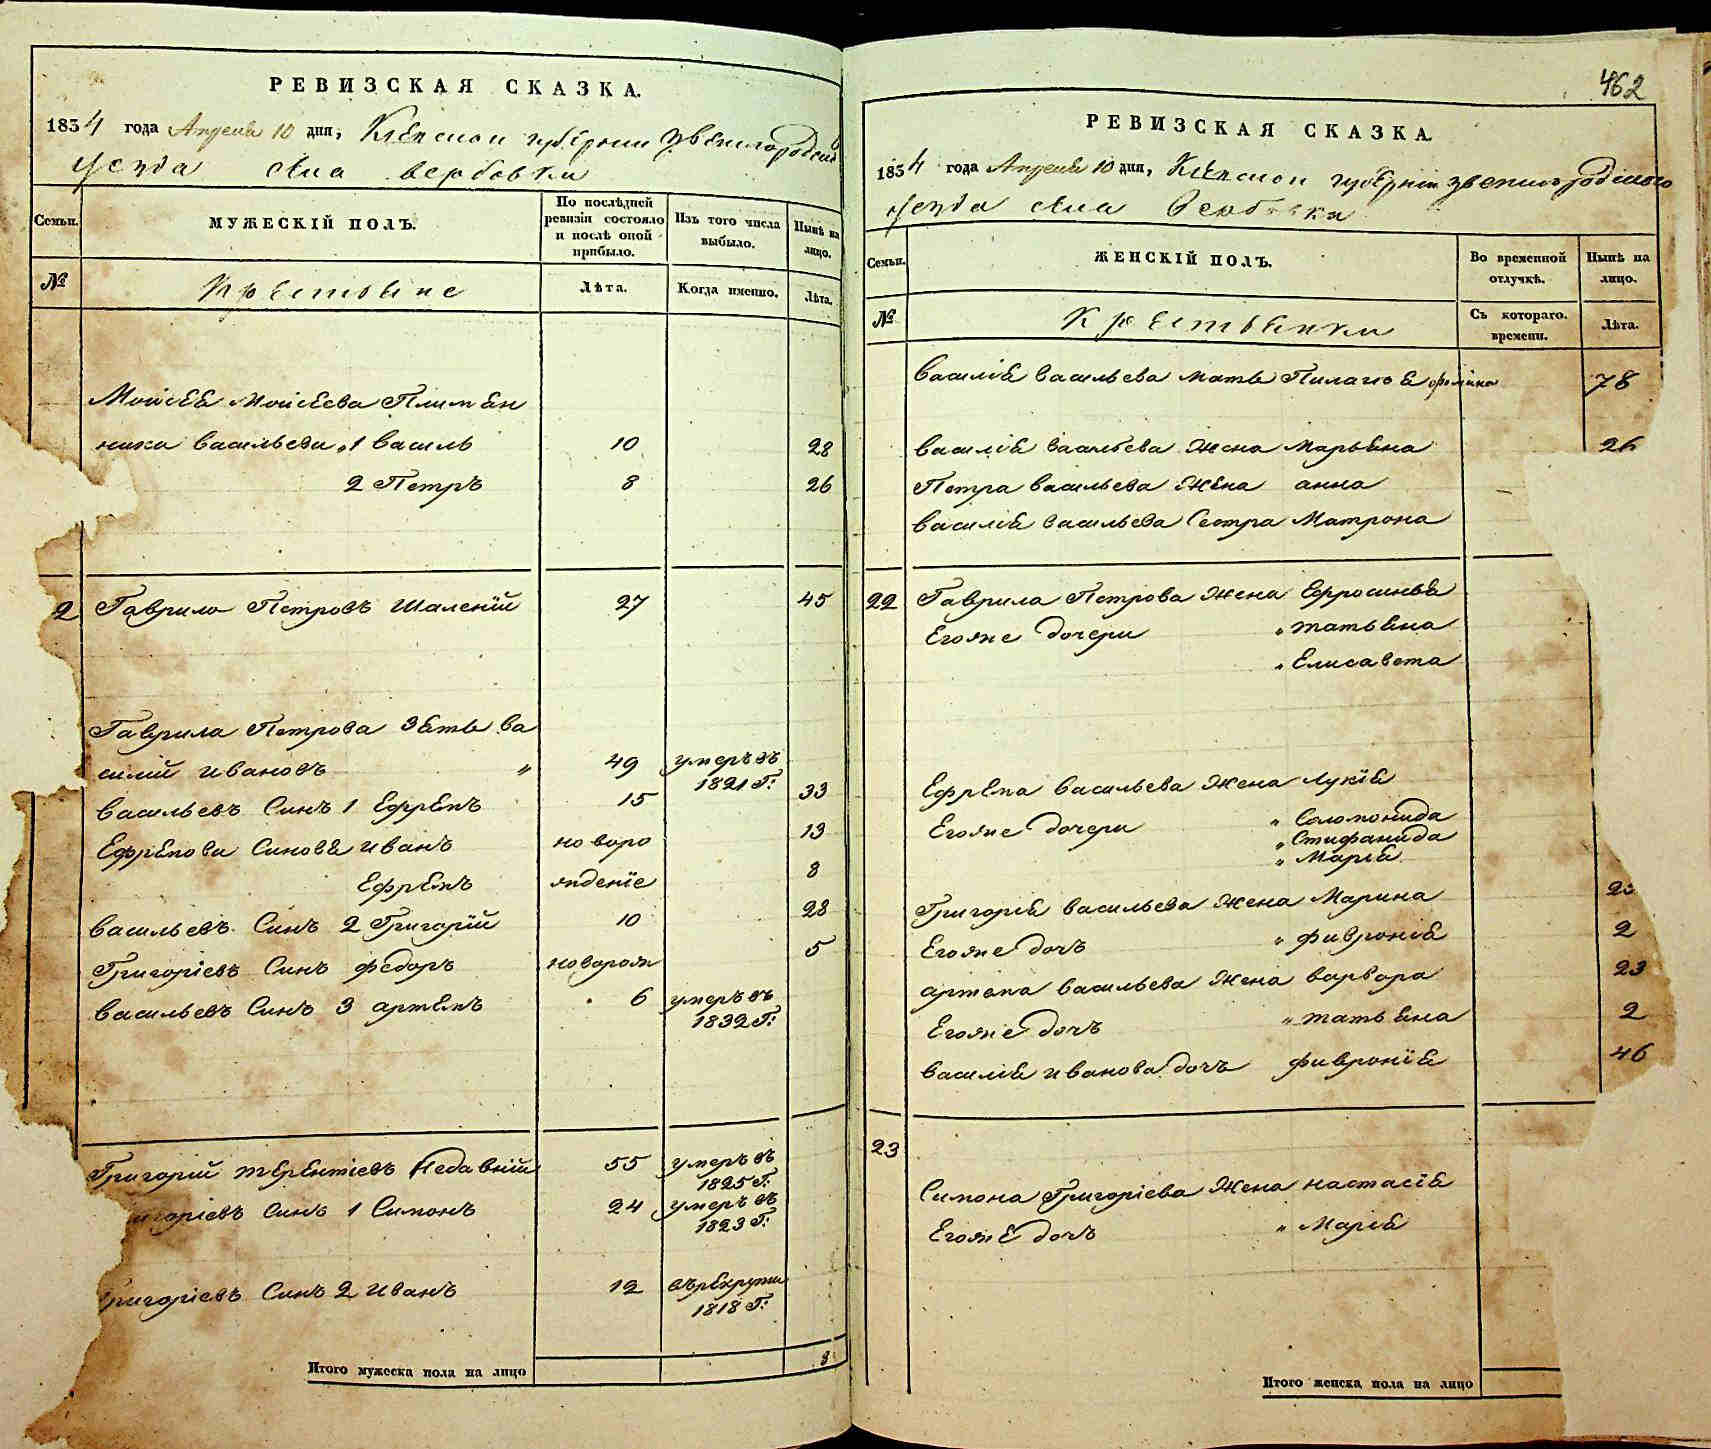 РЕВИЗСКАЯ СКАЗКА.
1834 года Апреля 10 дня, Кіевской губерніи Звенигородскаго
уезда села Вербовки
Семьи.
МУЖЕСКІЙ ПОЛЪ.
По послѣдней ревизіи состояло и послѣ оной прибыло.
Изъ того числа выбыло.
Нынѣ на лицо.
№
Крестьяне
Лѣта.
Когда именно.
Лѣта.
Моисея Моисеева Племян
ника Васильева 1 Василь 10 28
2 Петръ 8 26
2 Гаврило Петровъ Шаленій 27 45
Гаврила Петрова Зять Ва
силій Ивановъ " 49 умеръ въ 1821 Г:
Васильевъ Синъ 1 Ефремъ 15 33
Ефремови Синовя Иванъ новоро 13
Ефремъ жденіе 8
Васильевъ Синъ 2 Григорій 10 28
Григоріевъ Синъ Федоръ новорож 5
Васильевъ Синъ 3 Артемъ 6 умеръ въ 1832 Г:
Григорій Терентіевъ Недавній 55 умеръ въ 1825 Г:
игоріевъ Синъ 1 Симонъ 24 умеръ въ 1823 Г:
ригоріевъ Синъ 2 Иванъ 12 въ рекрути 1818 Г:
Итого мужеска пола на лицо 8
462
РЕВИЗСКАЯ СКАЗКА.
1834 года Апреля 10 дня, Кіевской губерніи Звенигородского
уезда села Вербовки
Семьи.
ЖЕНСКІЙ ПОЛЪ.
Во временной отлучкѣ.
Нынѣ на лицо.
№
Крестьянки
Съ котораго. времени.
Лѣта.
Василія Васильева мать Пилагія 78
Василія Васильева Жена Марьяна 26
Петра Васильева Жена Анна
Василія Васильева Сестра Матрона
22 Гаврила Петрова Жена Ефросинья
Егоже дочери " Татьяна
" Елисавета
Ефрема Васильева Жена Лукія
Егоже дочери " Соломонида
" Стифанида
" Марія
Григорія Васильева Жена Марина
Егоже дочъ " Фивронія 2
Артема Васильева Жена Варвара 23
Егоже дочъ " Татьяна 2
Василія Иванова дочъ Фивронія 46
23
Симона Григоріева Жена Настасія
Егоже дочъ " Марія
Итого женска пола на лицо